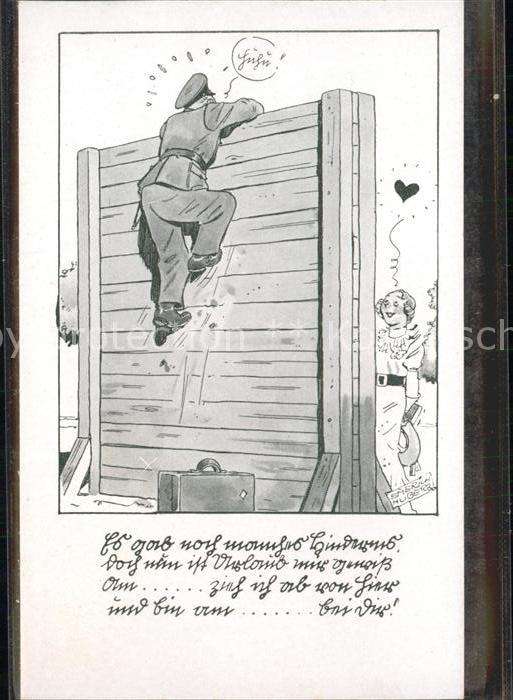 Huhu!
EMERICH
HUBER
Es gab noch manches Hindernis,
doch nun ist Urlaub mir gewiß
Am ...... zieh ich ab von hier
und bin am ........ bei Dir!